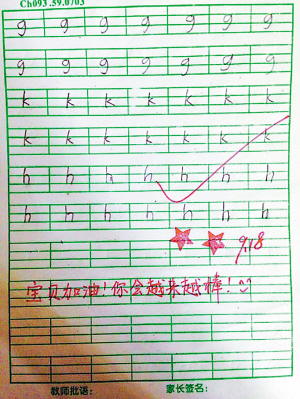 Ch093.59.0703
g g g g g g g
g g g g g g g
k k k k k k k
k k k k k k k
h h h h h h h
h h h h h h h
9.18
宝贝加油!你会越来越棒!
教师批语: 家长签名: